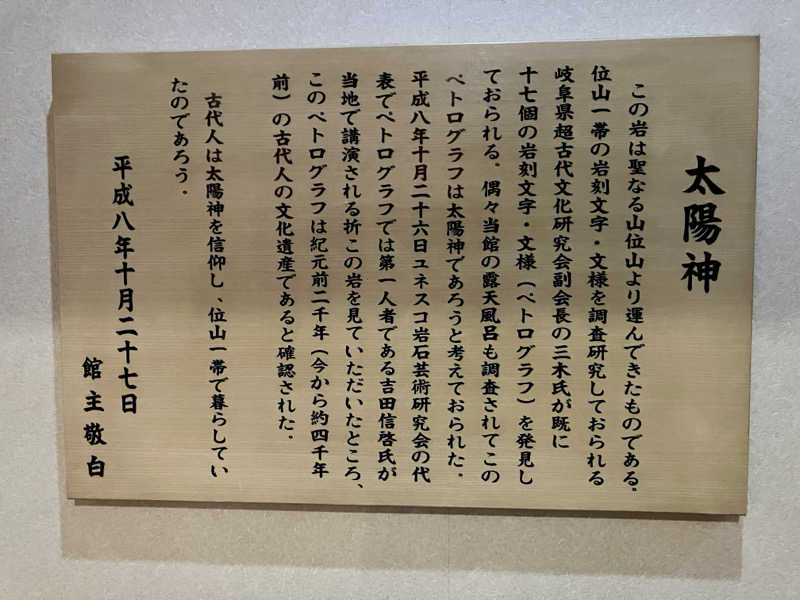 太陽神
この岩は聖なる山位山より運んできたものである。
位山一帯の岩刻文字・文様を調査研究しておられる
岐阜県超古代文化研究会副会長の三木氏が既に
十七個の岩刻文字・文様（ペトログラフ）を発見し
ておられる。偶々当館の露天風呂も調査されてこの
ペトログラフは太陽神であろうと考えておられた。
平成八年十月二十六日ユネスコ岩石芸術研究会の代
表でペトログラフでは第一人者である吉田信啓氏が
当地で講演される折この岩を見ていただいたところ、
このペトログラフは紀元前二千年（今から約四千年
前）の古代人の文化遺産であると確認された。
古代人は太陽神を信仰し、位山一帯で暮らしてい
たのであろう。
平成八年十月二十七日
館主敬白